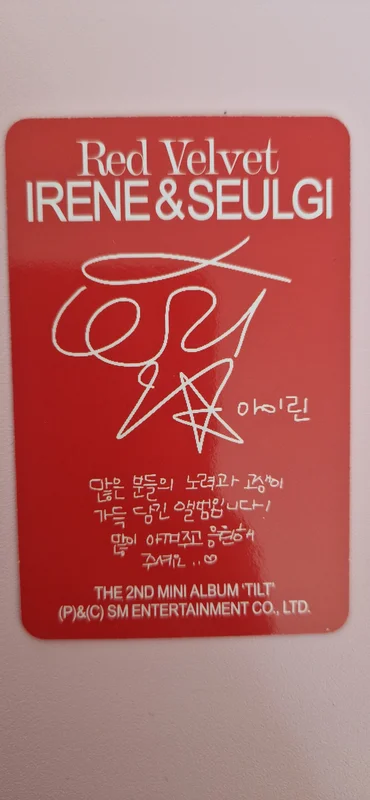 Red Velvet
IRENE & SEULGI
아이린
많은 분들의 노력과 고생이
가득 담긴 앨범입니다!
많이 아껴주고 응원해
주세요..♡
THE 2ND MINI ALBUM 'TILT'
(P)&(C) SM ENTERTAINMENT CO., LTD.